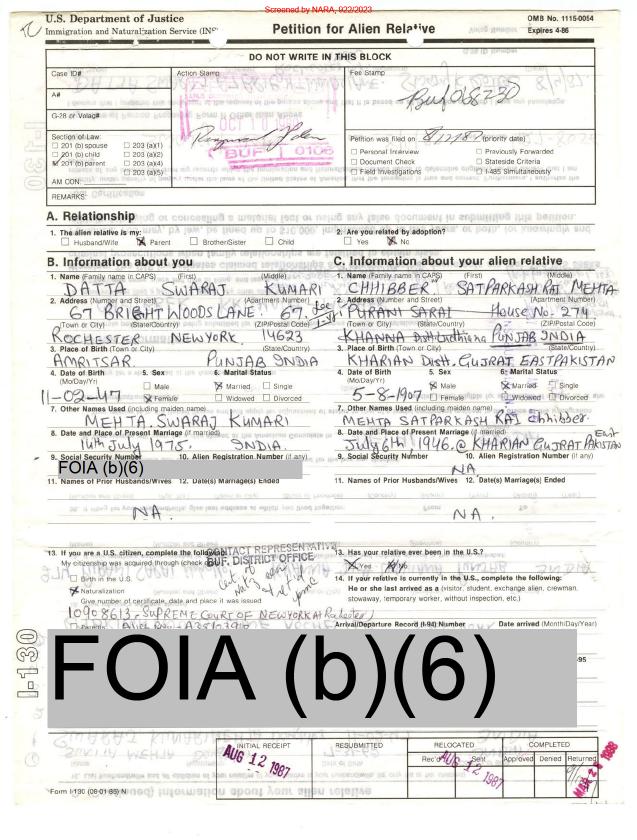 Screened by NARA, 922/2023
U.S. Department of Justice
Immigration and Naturalization Service (INS
Petition for Alien Relative
OMB No. 1115-0054
Expires 4-86
DO NOT WRITE IN THIS BLOCK
Case ID#
Action Stamp
Fee Stamp
A#
Buf 068230
G-28 or Volag#
OCT
Section of Law:
201 (b) spouse 203 (a)(1)
201 (b) child 203 (a)(2)
201 (b) parent 203 (a)(4)
203 (a)(5)
AM CON:
BUF 0106
Petition was filed on 8/12/87 (priority date)
Personal Interview Previously Forwarded
Document Check Stateside Criteria
Field Investigations I-485 Simultaneously
REMARKS:
A. Relationship
1. The alien relative is my:
Husband/Wife X Parent Brother/Sister Child
2. Are you related by adoption?
Yes X No
B. Information about you
1. Name (Family name in CAPS) (First) (Middle)
DATTA SWARAJ KUMARI
2. Address (Number and Street) (Apartment Number)
67 BRIGHT WOODS LANE 67.
(Town or City) (State/Country) (ZIP/Postal Code)
ROCHESTER NEWYORK 14623
3. Place of Birth (Town or City) (State/Country)
AMRITSAR PUNJAB INDIA
4. Date of Birth (Mo/Day/Yr) 5. Sex 6. Marital Status
Male X Married Single
11-02-47 X Female Widowed Divorced
7. Other Names Used (including maiden name)
MEHTA. SWARAJ KUMARI
8. Date and Place of Present Marriage (if married)
14th July 1975. INDIA.
9. Social Security Number 10. Alien Registration Number (if any)
FOIA (b)(6)
11. Names of Prior Husbands/Wives 12. Date(s) Marriage(s) Ended
NA.
13. If you are a U.S. citizen, complete the following
My citizenship was acquired through (check
CONTACT REPRESENTATIVE
BUF. DISTRICT OFFICE
Birth in the U.S.
X Naturalization
Give number of certificate, date and place it was issued
10908613 - SUPREME COURT OF NEWYORK At Rochester)
Parents
C. Information about your alien relative
1. Name (Family name in CAPS) (First) (Middle)
CHHIBBER SATPARKASH RAJ MEHTA
2. Address (Number and Street) (Apartment Number)
PURANI SARAI House No. 274
(Town or City) (State/Country) (ZIP/Postal Code)
KHANNA Distt Ludhiana PUNJAB INDIA
3. Place of Birth (Town or City) (State/Country)
KHARIAN Distt. GUJRAT EASTPAKISTAN
4. Date of Birth (Mo/Day/Yr) 5. Sex 6. Marital Status
X Male X Married Single
5-8-1907 Female Widowed Divorced
7. Other Names Used (including maiden name)
MEHTA SATPARKASH RAJ Chhibber.
8. Date and Place of Present Marriage (if married)
July 6th, 1946. @ KHARIAN GUJRAT East PAKISTAN
9. Social Security Number 10. Alien Registration Number (if any)
NA
11. Names of Prior Husbands/Wives 12. Date(s) Marriage(s) Ended
NA.
13. Has your relative ever been in the U.S.?
Yes No
14. If your relative is currently in the U.S., complete the following:
He or she last arrived as a (visitor, student, exchange alien, crewman,
stowaway, temporary worker, without inspection, etc.)
Arrival/Departure Record (I-94) Number Date arrived (Month/Day/Year)
I-130
FOIA (b)(6)
INITIAL RECEIPT
RESUBMITTED
RELOCATED
COMPLETED
Rec'd Sent Approved Denied Returned
AUG 12 1987
AUG 12 1987
MAR 28 1988
Form I-130 (08-01-85) N